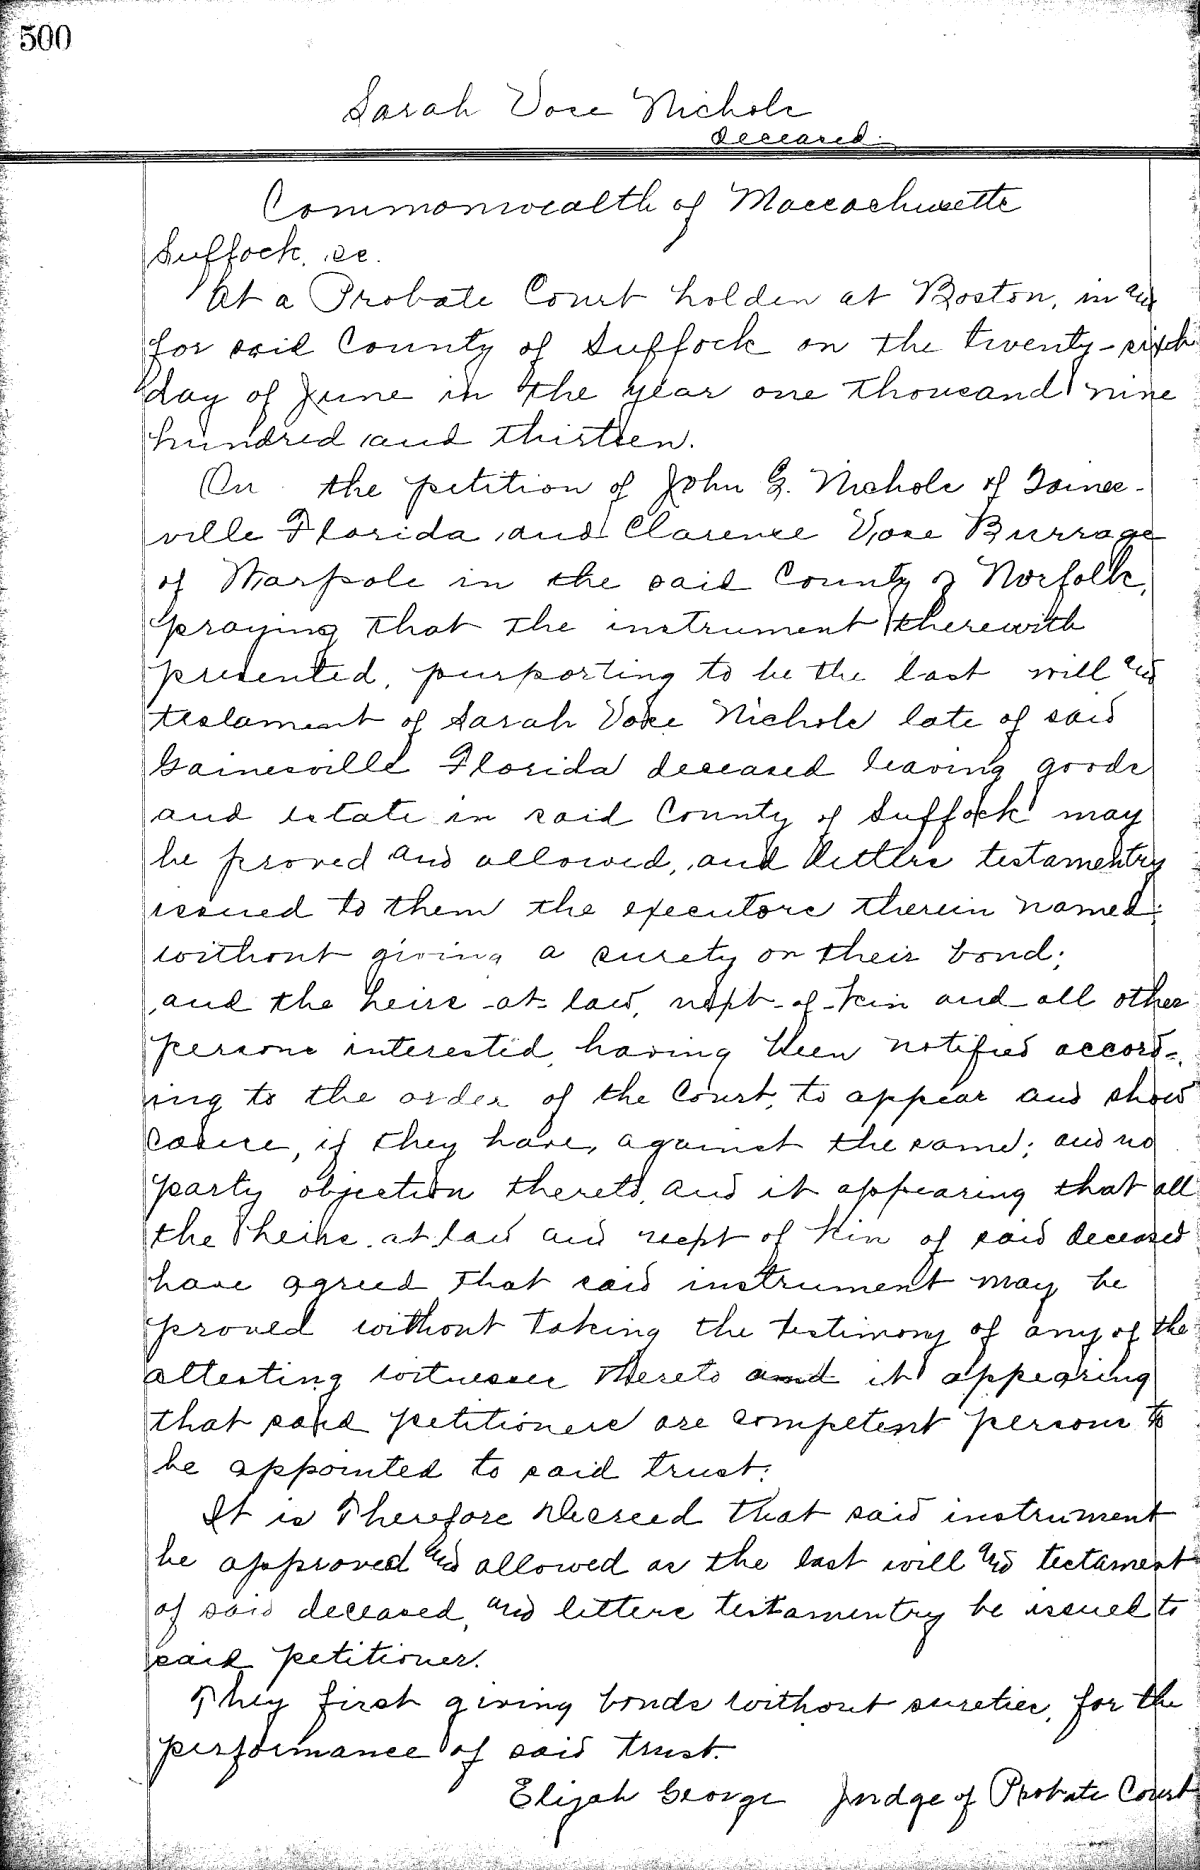 500
Sarah Vose Nichols
deceased.
Commonwealth of Massachusetts
Suffock, ss.
At a Probate Court holden at Boston, in and
for said County of Suffock on the twenty-sixth
day of June in the year one thousand nine
hundred and thirteen.
On the petition of John G. Nichols of Gaines-
ville Florida and Clarence Vose Burrage
of Warpole in the said County of Norfolk,
praying that the instrument therewith
presented, purporting to be the last will and
testament of Sarah Vose Nichols late of said
Gainesville Florida deceased leaving goods
and estate in said County of Suffock may
be proved and allowed, and letters testamentry
issued to them the executors therein named;
without giving a surety on their bond;
and the heirs-at-law, next-of-kin and all other
persons interested, having been notified accord-
ing to the order of the Court, to appear and show
cause, if they have, against the same; and no
party objection thereto, and it appearing that all
the heirs at law and next of kin of said deceased
have agreed that said instrument may be
proved without taking the testimony of any of the
attesting witnesses thereto and it appearing
that said petitioners are competent persons to
be appointed to said trust;
It is Therefore decreed that said instrument
be approved and allowed as the last will and testament
of said deceased, and letters testamentry be issued to
said petitioner.
They first giving bonds without sureties, for the
performance of said trust.
Elijah George Judge of Probate Court